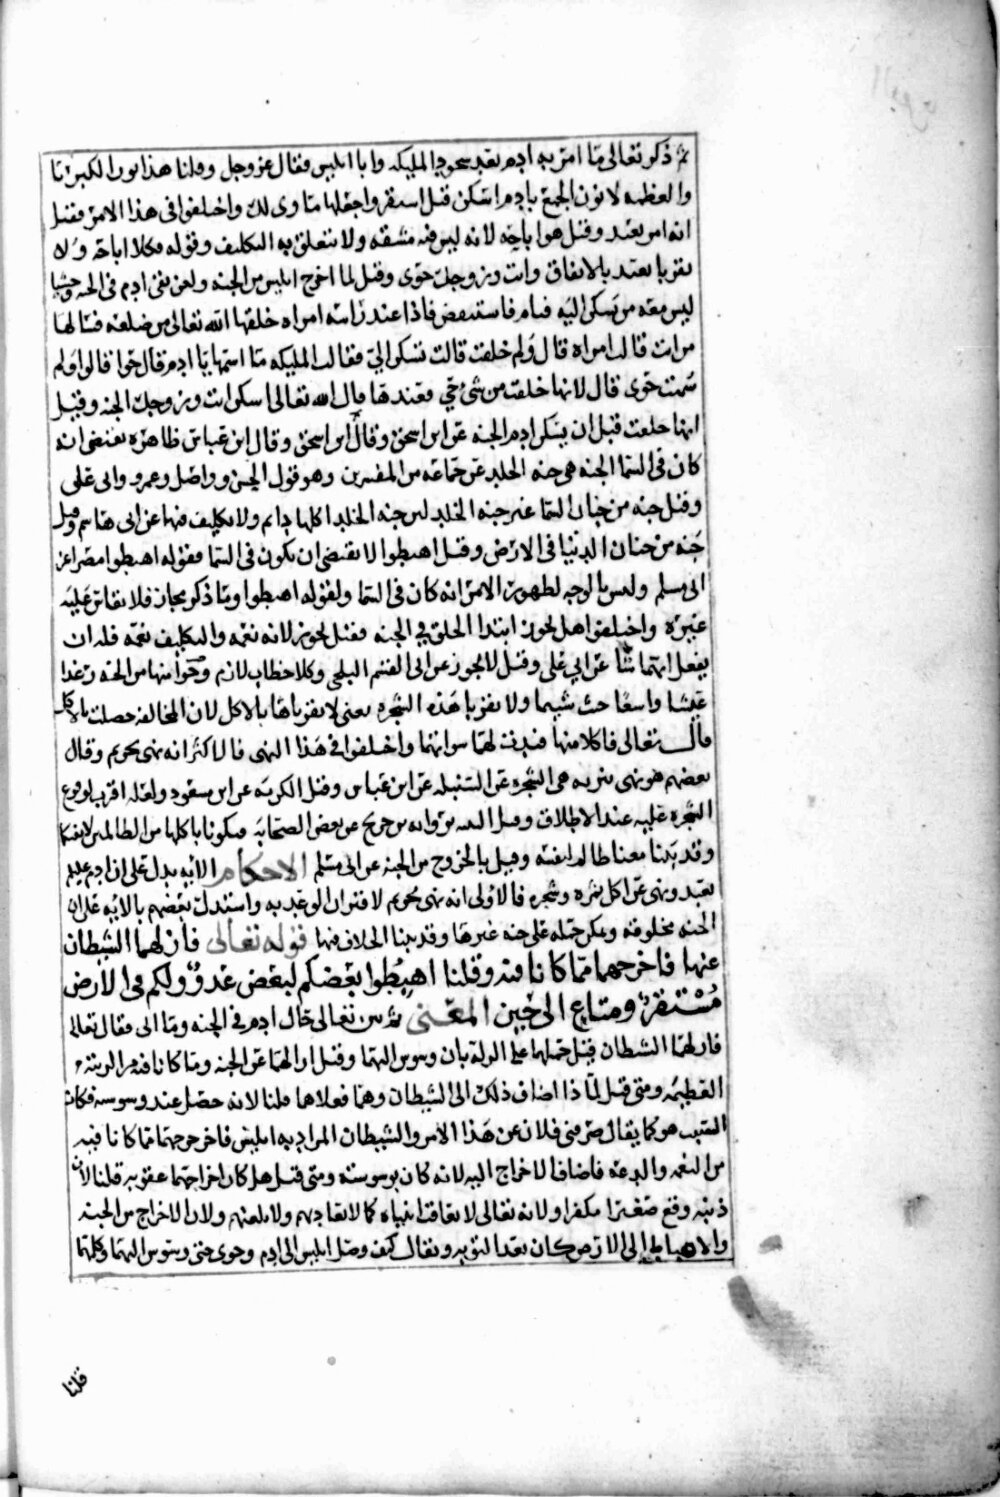 ثم ذكر تعالى ما امر به ادم بعد سجود المليكه وابا ابليس فقال عز وجل وقلنا هذا نون الكبريا
والعظمه لا نون الجمع يا ادم اسكن قيل استقر واجعلها ماوى لك واختلفوا في هذا الامر فقيل
انه امر تعبد وقيل هو اباحه لانه ليس فيه مشقه ولا يتعلق به التكليف وقوله فكلا اباحة ولا
تقربا تعبد بالاتفاق وانت وزوجك حوى وقيل لما اخرج ابليس من الجنه ولعن بقى ادم في الجنه وحشيا
ليس معه من يسكن اليه فنام فاستيقض فاذا عند راسه امراه خلقها الله تعالى من ضلعه فسالها
من انت قالت امراه قال ولم خلقت قالت لتسكن الي فقالت المليكه ما اسمها يا ادم قال حوا قالوا ولم
سميت حوى قال لانها خلقت من شي حي فعندها قال الله تعالى اسكن انت وزوجك الجنه وقيل
انها خلقت قبل ان يسكن ادم الجنه عن ابن اسحق وقال ابن اسحق وقال ابن عباس ظاهره يقتضى انه
كان في السما الجنه هي جنه الخلد عن جماعه من المفسرين وهو قول الحسن وواصل وعمرو وابى على
وقيل جنه من جنان السما غير جنه الخلد لان جنه الخلد اكلها دايم ولا تكليف فيها عن ابى هاشم وقيل
جنه من جنان الدنيا في الارض وقيل اهبطوا لا يقتضى ان يكون في السما فقوله اهبطوا مصرا عن
ابى مسلم وليس بالوجه لظهور الامر انه كان في السما ولقوله اهبطوا وما ذكر مجاز فلا يقاس عليه
غيره واختلفوا هل يجوز ابتدا الخلق في الجنه فقيل يجوز لانه نعمه والتكليف نعمه فله ان
يفعل ايهما شا عن ابي على وقيل لا يجوز عن ابى القسم البلخي وكلا خطاب لادم وحوا منها من الجنه رغدا
عيشا واسعا حيث شيتما ولا تقربا هذه الشجره يعنى لا تقرباها بالاكل لان المخالفه حصلت بالاكل
قال تعالى فاكلا منها فبدت لهما سواتهما واختلفوا في هذا النهى فالاكثر انه نهى تحريم وقال
بعضهم هو نهى تنزيه هي الشجره عن السنبله عن ابن عباس وقيل الكرمه عن ابن مسعود ولعله اقرب لوقوع
الشجره عليه عند الاطلاق وقيل التينه رواه بن جريج عن بعض الصحابه فتكونا باكلها من الظالمين لانفسكما
وقد بينا معنا ظالم لنفسه وقيل بالخروج من الجنه عن ابى مسلم الاحكام الايه يدل على ان ادم عليلم
تعبد ونهى عن اكل ثمره وشجره فالاولى انه نهى تحريم لاقتران الوعيد به واستدل بعضهم بالايه على ان
الجنه مخلوقه ويمكن حمله على جنه غيرها وقد بينا الخلاف فيها قوله تعالى فازلهما الشيطان
عنها فاخرجهما مما كانا فيه وقلنا اهبطوا بعضكم لبعض عدو ولكم في الارض
مستقر ومتاع الى حين المعنى ثم بين تعالى حال ادم في الجنه وما الى فقال تعالى
فازلهما الشيطان قيل حملهما على الزلة بان وسوس اليهما وقيل ازالهما عن الجنه وما كانا فيه من الرتبه
العظيمه ومتى قيل لماذا اضاف ذلك الى الشيطان وهما فعلاها قلنا لانه حصل عند وسوسه فكان
السبب هو كما يقال صرفنى فلان عن هذا الامر والشيطان المراد به ابليس فاخرجهما مما كانا فيه
من النعمه والدعه فاضاف الاخراج اليه لانه كان بوسوسته ومتى قيل هل كان اخراجهما عقوبه قلنا لا لان
ذنبه وقع صغيرا مكفرا ولانه تعالى لا يعاقب انبياه كما لا يعاديهم ولا يلعنهم ولان الاخراج من الجنه
والاهباط الى الارض كان بعد التوبه ويقال كيف وصل ابليس الى ادم وحوى حتى وسوس اليهما وكلمهما
قلنا